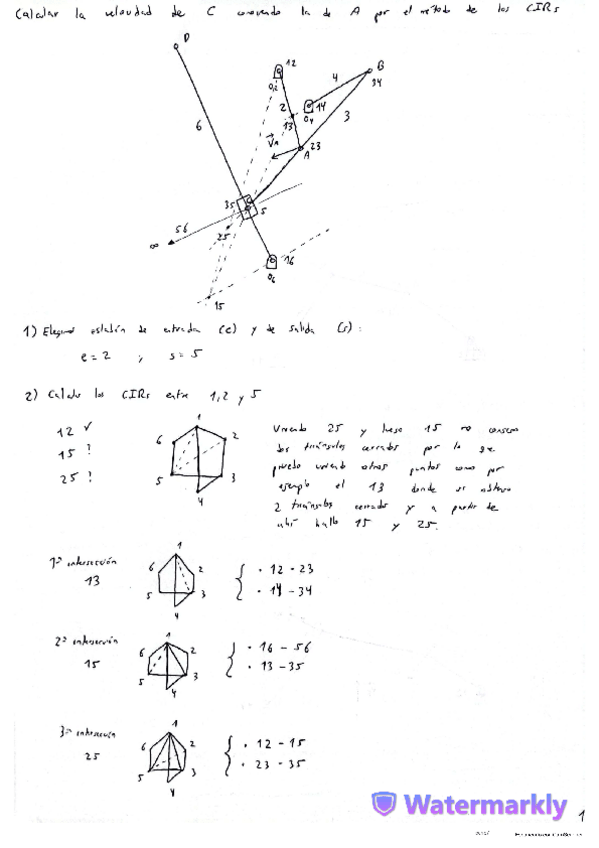 Calcular la velocidad de C conociendo la de A por el método de los CIRs
D
12
O2
B
34
4
14
O4
2
13
3
6
23
A
35
5
56
25
∞
16
O6
15
1) Elegimos eslabón de entrada (e) y de salida (s):
e = 2 ; s = 5
2) Calculo los CIRs entre 1, 2 y 5
12 ✓
15 ?
25 ?
1
6
2
5
3
4
Uniendo 25 y luego 15 no consigo
dos triángulos cerrados por lo que
pruebo uniendo otros puntos como por
ejemplo el 13 donde se obtiene
2 triángulos cerrados y a partir de
ahí hallo 15 y 25.
1ª intersección
13
1
6
2
5
3
4
· 12 - 23
· 14 - 34
2ª intersección
15
1
6
2
5
3
4
· 16 - 56
· 13 - 35
3ª intersección
25
1
6
2
5
3
4
· 12 - 15
· 23 - 35
Watermarkly
1